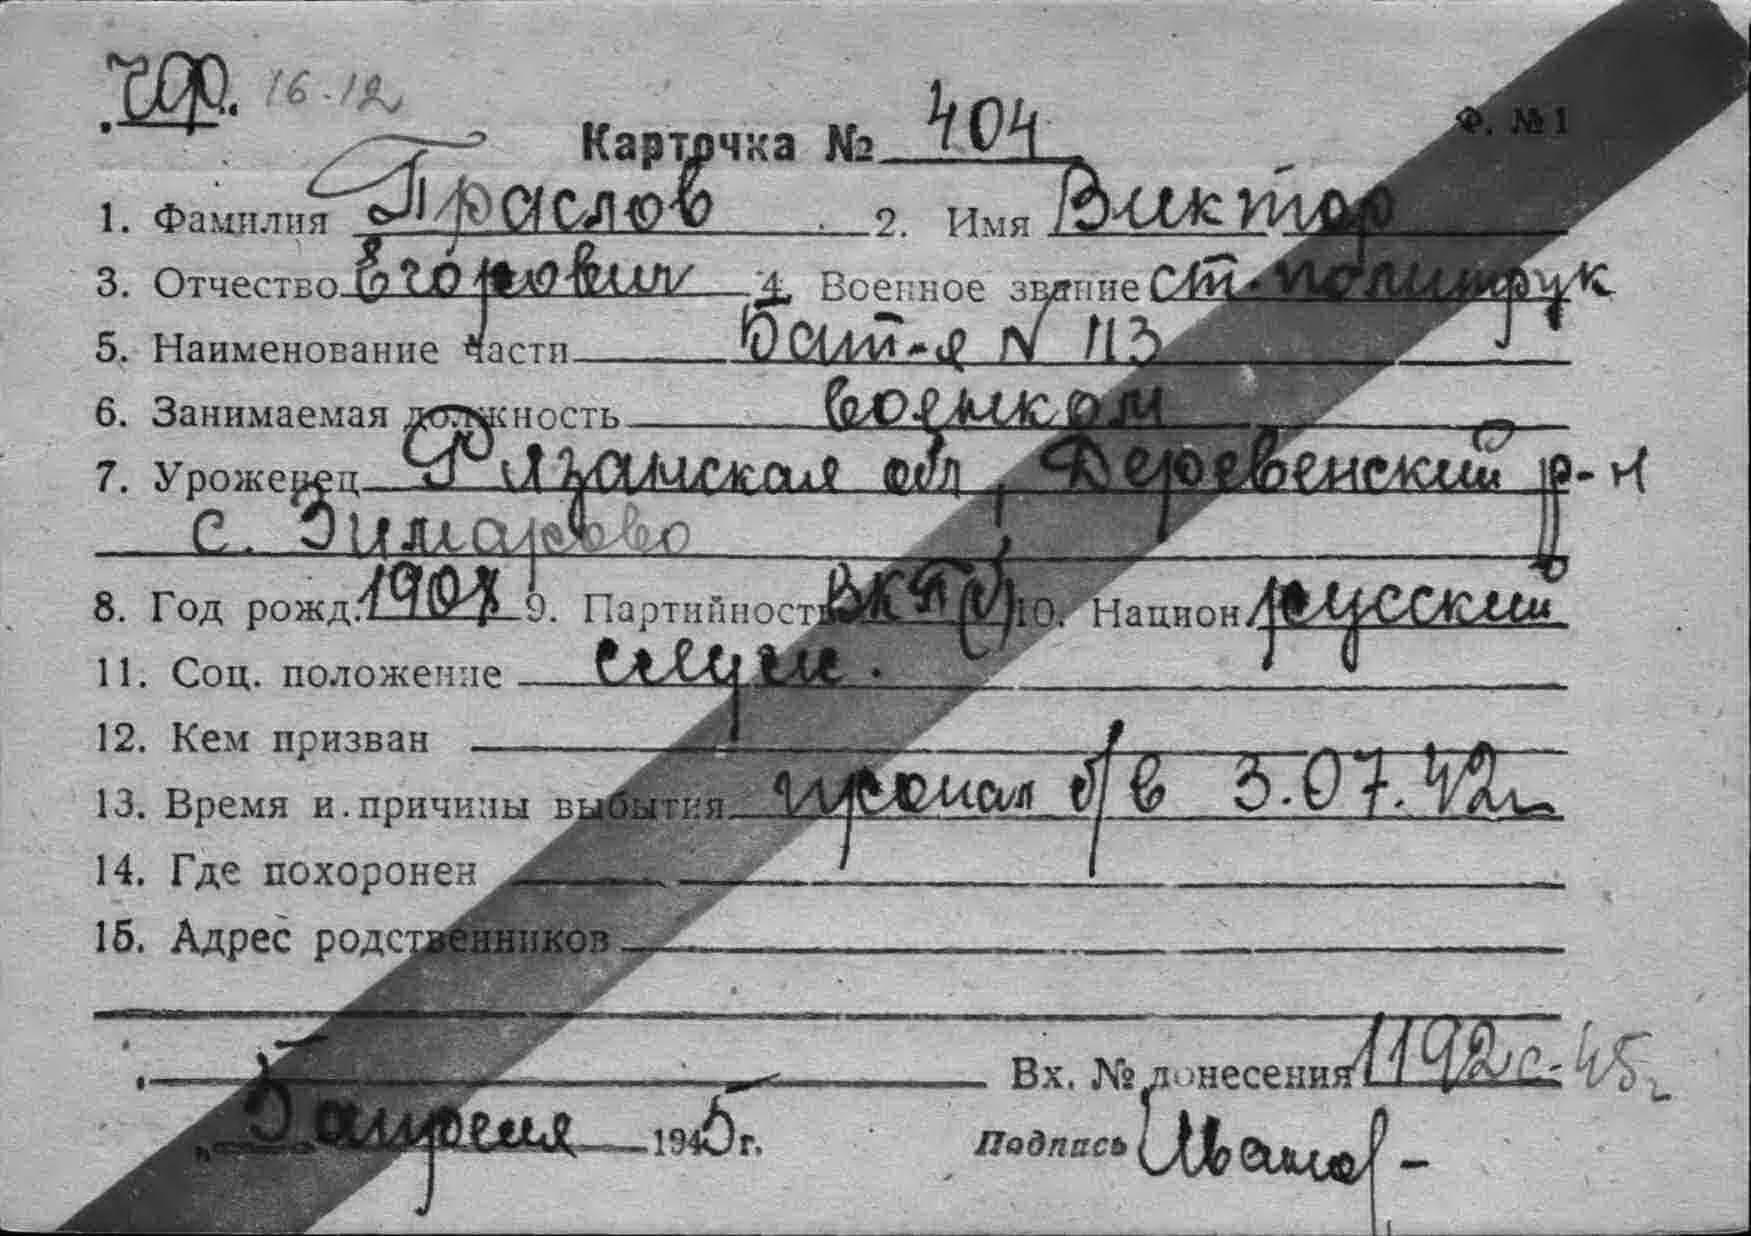 ЧФ. 16.12
Карточка № 404 Ф. №1
1. Фамилия Праслов 2. Имя Виктор
3. Отчество Егорович 4. Военное звание ст. политрук
5. Наименование части Бат-я N 113
6. Занимаемая должность военком
7. Уроженец Рязанская обл, Деревенский р-н
с. Зимарово
8. Год рожд. 1907 9. Партийность ВКП(б) 10. Национ русский
11. Соц. положение служ.
12. Кем призван
13. Время и причины выбытия пропал б/в 3.07.42г
14. Где похоронен
15. Адрес родственников
Вх. № донесения 1192с-45г
„5 апреля 1945 г. Подпись Иванов